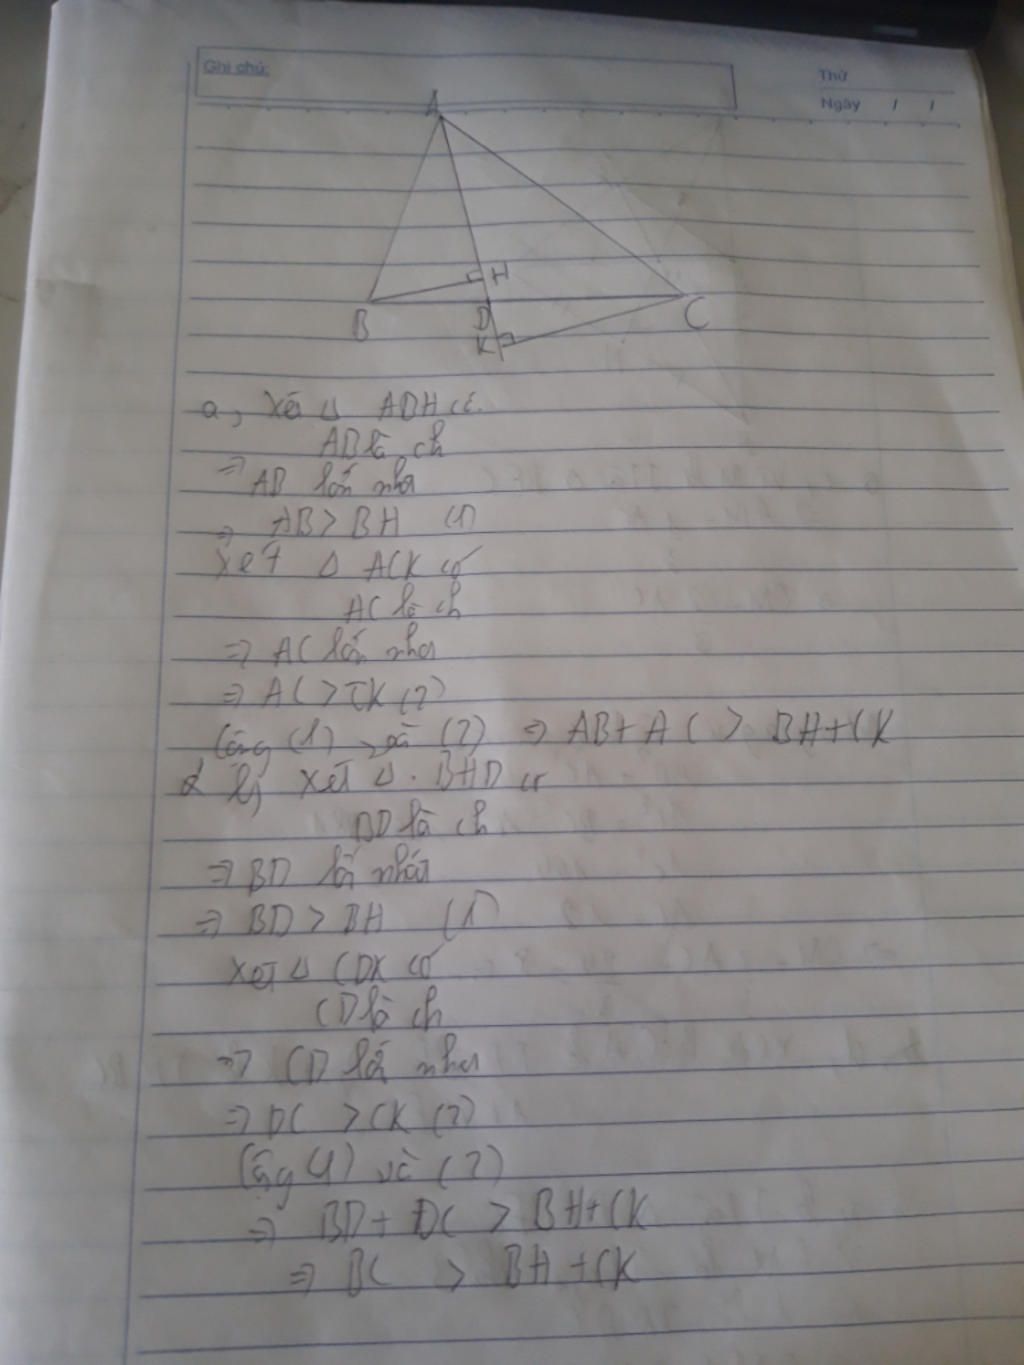 Ghi chú:
Thứ
Ngày / /
A
H
B
D
C
K
a, Xét Δ ABH có
AB là ch
⇒ AB lớn nhơ
⇒ AB > BH (1)
Xét Δ ACK có
AC là ch
⇒ AC lớn nhơ
⇒ AC > CK (2)
Cộng (1) và (2) ⇒ AB + AC > BH + CK
b, Xét Δ BHD có
BD là ch
⇒ BD lớn nhất
⇒ BD > BH (1)
Xét Δ CDK có
CD là ch
⇒ CD lớ nhơ
⇒ DC > CK (2)
Cộng (1) và (2)
⇒ BD + DC > BH + CK
⇒ BC > BH + CK